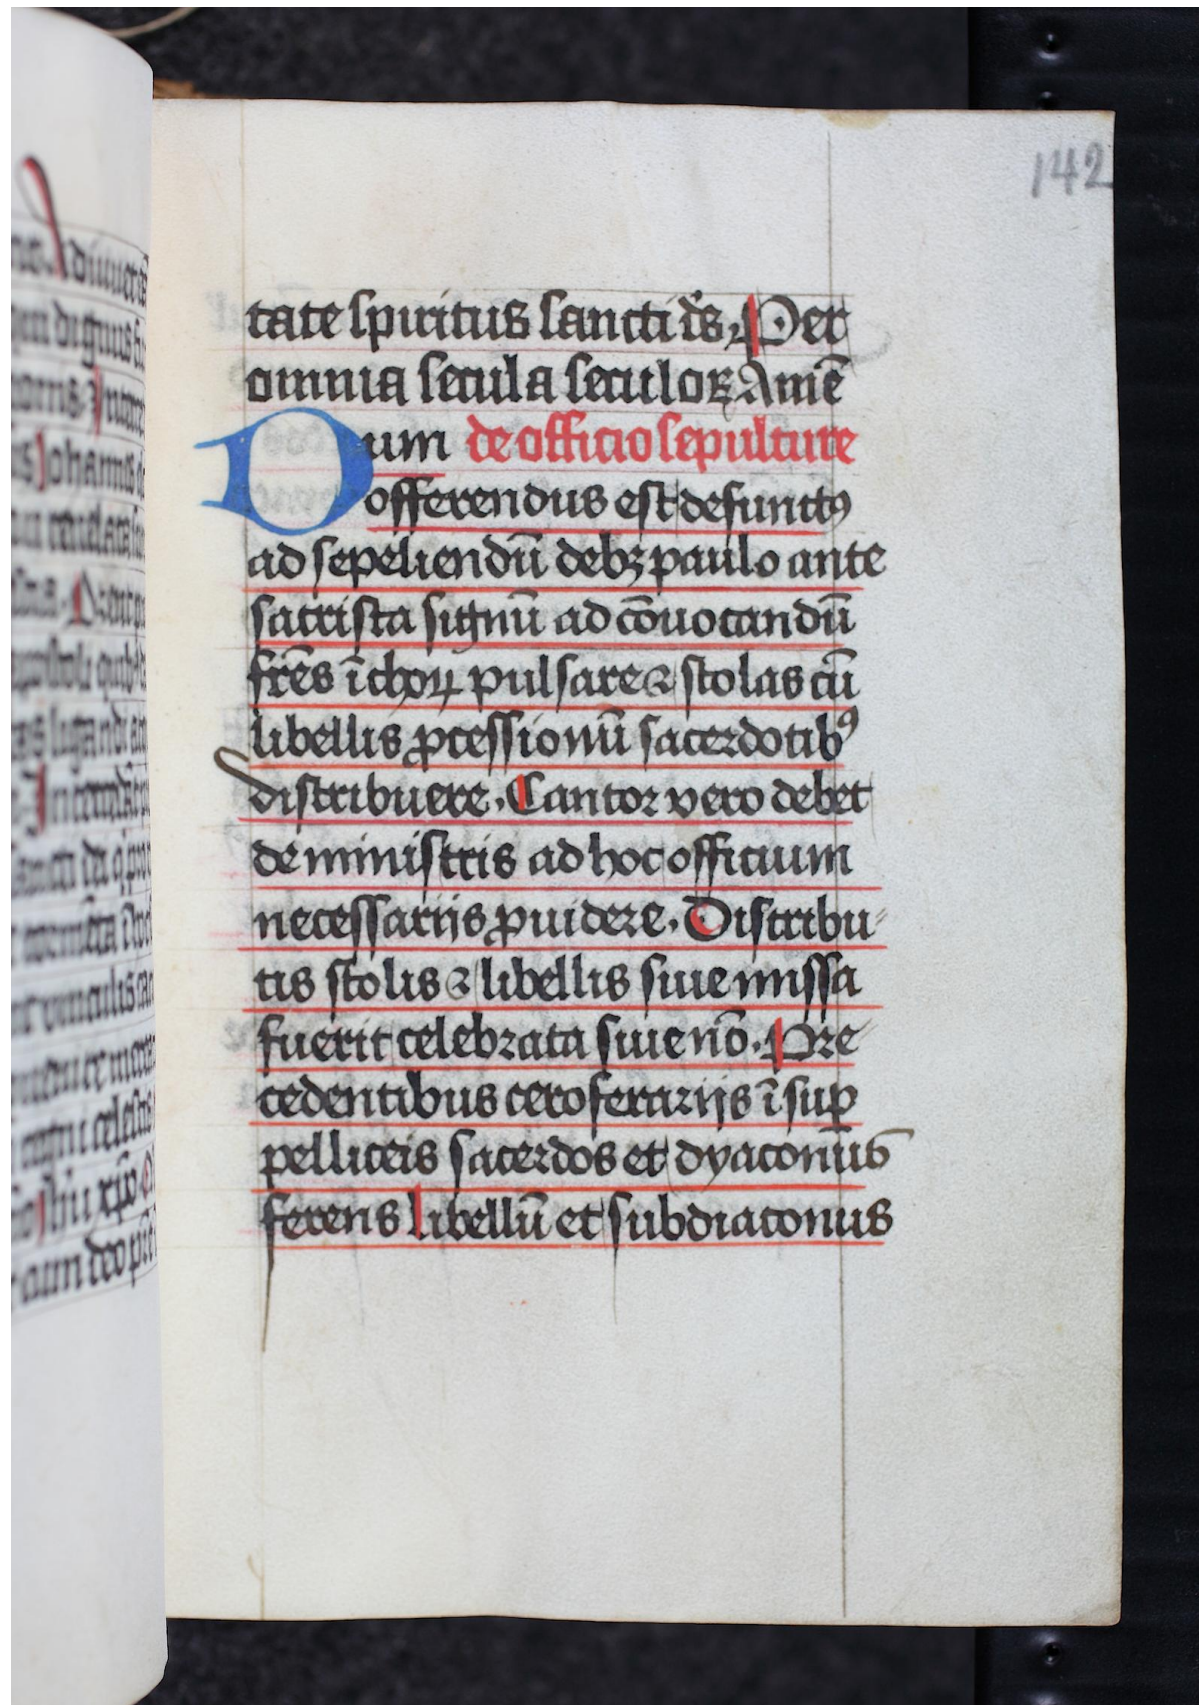 142
tate spiritus sancti d̄s. Per
omnia secula seculoꝝ Amē
Dum de officio sepulture
offerendus est defunctꝰ
ad sepeliendū debꝫ paulo ante
sacrista signū ad cōuocandū
fr̄es ī choꝝ pulsare ⁊ stolas cū
libellis ꝓcessionū sacerdotibꝰ
distribuere. Cantor vero debet
de ministris ad hoc officium
necessarijs ꝓuidere. Distribu-
tis stolis ⁊ libellis siue missa
fuerit celebrata siue nō. Pre
cedentibus ceroferarijs ī suꝑ
pelliceis sacerdos et dyaconus
ferens libellū et subdiaconus